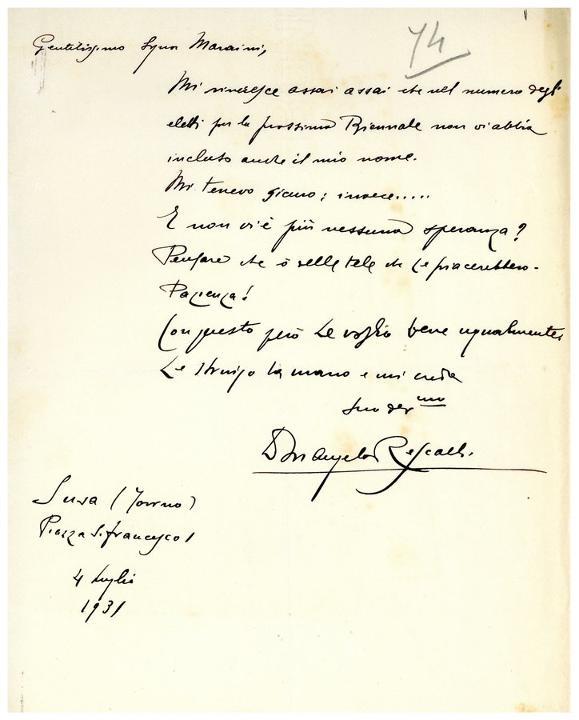 74
Gentilissimo Signor Maraini,
Mi rincresce assai assai che nel numero degli
eletti per la prossima Biennale non vi abbia
incluso anche il mio nome.
Mi tenevo sicuro; invece.....
E non vi è più nessuna speranza?
Pensare che ò delle tele che Le piacerebbero.
Pazienza!
Con questo però Le voglio bene ugualmente
Le stringo la mano e mi creda
Suo dev mo
D. Angelo Rescalli
Susa (Torino)
Piazza S. Francesco 1
4 Luglio
1931